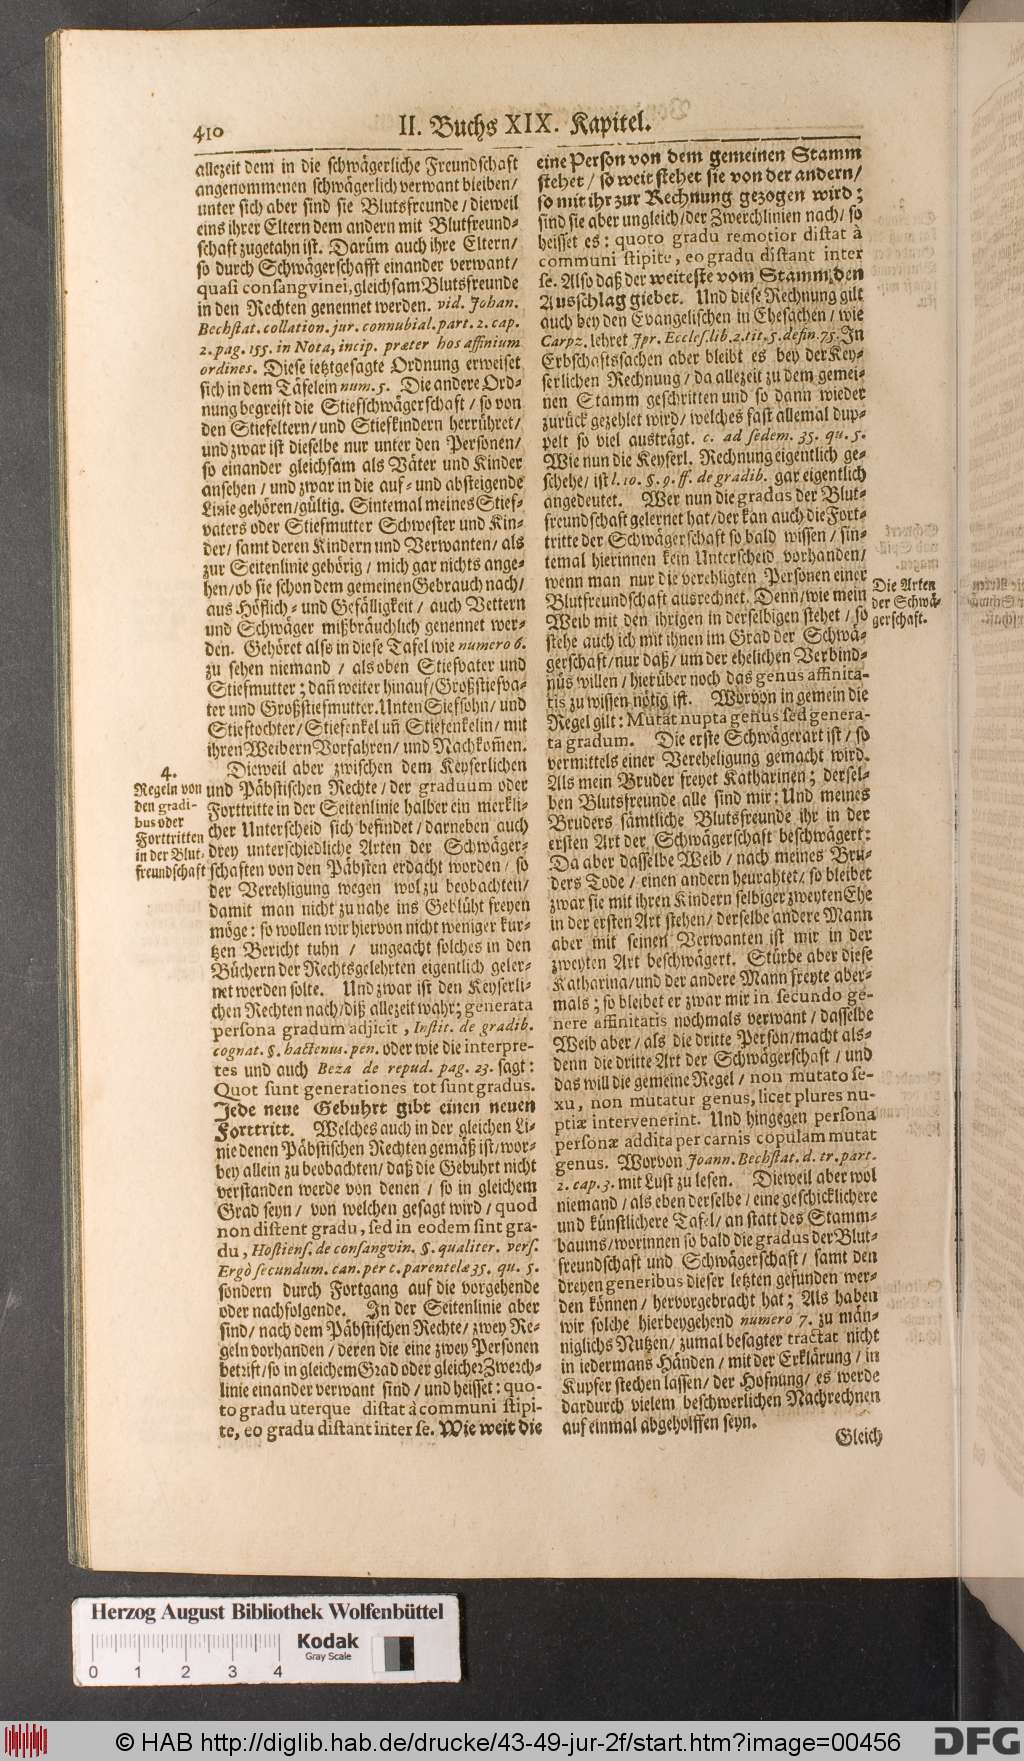 410
II. Buchs XIX. Kapitel.
allezeit dem in die schwägerliche Freundschaft
angenommenen schwägerlich verwant bleiben/
unter sich aber sind sie Blutsfreunde / dieweil
eins ihrer Eltern dem andern mit Blutfreund-
schaft zugetahn ist. Darüm auch ihre Eltern/
so durch Schwägerschafft einander verwant/
quasi consangvinei, gleichsam Blutsfreunde
in den Rechten genennet werden. vid. Johan.
Bechstat. collation. jur. connubial. part. 2. cap.
2. pag. 155. in Nota, incip. præter hos affinium
ordines. Diese ietztgesagte Ordnung erweiset
sich in dem Täfelein num. 5. Die andere Ord-
nung begreift die Stiefschwägerschaft / so von
den Stiefeltern/ und Stiefkindern herrühret/
und zwar ist dieselbe nur unter den Personen/
so einander gleichsam als Väter und Kinder
ansehen / und zwar in die auf- und absteigende
Linie gehören/gültig. Sintemal meines Stief-
vaters oder Stiefmutter Schwester und Kin-
der/ samt deren Kindern und Verwanten/ als
zur Seitenlinie gehörig / mich gar nichts ange-
hen/ ob sie schon dem gemeinen Gebrauch nach/
aus Höflich- und Gefälligkeit / auch Vettern
und Schwäger mißbräuchlich genennet wer-
den. Gehöret also in diese Tafel wie numero 6.
zu sehen niemand / als oben Stiefvater und
Stiefmutter; dañ weiter hinauf/Großstiefva-
ter und Großstiefmutter. Unten Siefsohn/ und
Stieftochter/ Stiefenkel uñ Stiefenkelin/ mit
ihren Weibern Vorfahren/ und Nachkom̃en.
4.
Regeln von
den gradi-
bus oder
Forttritten
in der Blut-
freundschaft
Dieweil aber zwischen dem Keyserlichen
und Päbstischen Rechte / der graduum oder
Forttritte in der Seitenlinie halber ein merkli-
cher Unterscheid sich befindet / darneben auch
drey unterschiedliche Arten der Schwäger-
schaften von den Päbsten erdacht worden / so
der Verehligung wegen wol zu beobachten/
damit man nicht zu nahe ins Geblüht freyen
möge: so wollen wir hiervon nicht weniger kur-
tzen Bericht tuhn / ungeacht solches in den
Büchern der Rechtsgelehrten eigentlich geler-
net werden solte. Und zwar ist den Keyserli-
chen Rechten nach/diß allezeit wahr; generata
persona gradum adjicit, Instit. de gradib.
cognat. §. hactenus. pen. oder wie die interpre-
tes und auch Beza de repud. pag. 23. sagt:
Quot sunt generationes tot sunt gradus.
Jede neue Gebuhrt gibt einen neuen
Forttritt. Welches auch in der gleichen Li-
nie denen Päbstischen Rechten gemäß ist/ wor-
bey allein zu beobachten/ daß die Gebuhrt nicht
verstanden werde von denen / so in gleichem
Grad seyn / von welchen gesagt wird / quod
non distent gradu, sed in eodem sint gra-
du, Hostiens. de consangvin. §. qualiter. vers.
Ergò secundum. can. per t. parentelæ 35. qu. 5.
sondern durch Fortgang auf die vorgehende
oder nachfolgende. In der Seitenlinie aber
sind/ nach dem Päbstischen Rechte/ zwey Re-
geln vorhanden / deren die eine zwey Personen
betrift/so in gleichem Grad oder gleicher Zwerch-
linie einander verwant sind / und heisset: quo-
to gradu uterque distat à communi stipi-
te, eo gradu distant inter se. Wie weit die
eine Person von dem gemeinen Stamm
stehet / so weit stehet sie von der andern/
so mit ihr zur Rechnung gezogen wird;
sind sie aber ungleich/der Zwerchlinien nach/ so
heisset es: quoto gradu remotior distat à
communi stipite, eo gradu distant inter
se. Also daß der weiteste vom Stamm, den
Ausschlag giebet. Und diese Rechnung gilt
auch bey den Evangelischen in Ehesachen / wie
Carpz. lehret Jpr. Eccles. lib. 2. tit. 5. defin. 75. In
Erbschaftssachen aber bleibt es bey der Key-
serlichen Rechnung / da allezeit zu dem gemei-
nen Stamm geschritten und so dann wieder
zurück gezehlet wird/ welches fast allemal dup-
pelt so viel austrägt. c. ad sedem. 35. qu. 5.
Wie nun die Keyserl. Rechnung eigentlich ge-
schehe/ ist l. 10. §. 9. ff. de gradib. gar eigentlich
angedeutet. Wer nun die gradus der Blut-
freundschaft gelernet hat/ der kan auch die Fort-
tritte der Schwägerschaft so bald wissen / sin-
temal hierinnen kein Unterscheid vorhanden/
wenn man nur die verehligten Personen einer
Blutfreundschaft ausrechnet. Denn/ wie mein
Weib mit den ihrigen in derselbigen stehet / so
stehe auch ich mit ihnen im Grad der Schwä-
gerschaft/nur daß/ um der ehelichen Verbind-
nüs willen / hierüber noch das genus affinita-
tis zu wissen nötig ist. Worvon in gemein die
Regel gilt: Mutat nupta genus sed genera-
ta gradum. Die erste Schwägerart ist / so
vermittels einer Vereheligung gemacht wird.
Als mein Bruder freyet Katharinen; dersel-
ben Blutsfreunde alle sind mir: Und meines
Bruders sämtliche Blutsfreunde ihr in der
ersten Art der Schwägerschaft beschwägert:
Da aber dasselbe Weib / nach meines Bru-
ders Tode / einen andern heurahtet/ so bleibet
zwar sie mit ihren Kindern selbiger zweyten Ehe
in der ersten Art stehen/ derselbe andere Mann
aber mit seinen Verwanten ist mir in der
zweyten Art beschwägert. Stürbe aber diese
Katharina/und der andere Mann freyte aber-
mals; so bleibet er zwar mir in secundo ge-
nere affinitatis nochmals verwant / dasselbe
Weib aber / als die dritte Person/macht als-
denn die dritte Art der Schwägerschaft / und
das will die gemeine Regel / non mutato se-
xu, non mutatur genus, licet plures nu-
ptiæ intervenerint. Und hingegen persona
personæ addita per carnis copulam mutat
genus. Worvon Joann. Bechstat. d. tr. part.
2. cap. 3. mit Lust zu lesen. Dieweil aber wol
niemand / als eben derselbe / eine geschicklichere
und künstlichere Tafel/ an statt des Stamm-
baums/worinnen so bald die gradus der Blut-
freundschaft und Schwägerschaft / samt den
dreyen generibus dieser letzten gefunden wer-
den können / hervorgebracht hat; Als haben
wir solche hierbeygehend numero 7. zu män-
niglichs Nutzen/ zumal besagter tractat nicht
in iedermans Händen / mit der Erklärung / in
Kupfer stechen lassen/ der Hofnung/ es werde
dardurch vielem beschwerlichen Nachrechnen
auf einmal abgeholffen seyn.
Die Arten
der Schwä-
gerschaft.
Gleich
Herzog August Bibliothek Wolfenbüttel
Kodak
Gray Scale
0 1 2 3 4
© HAB http://diglib.hab.de/drucke/43-49-jur-2f/start.htm?image=00456
DFG